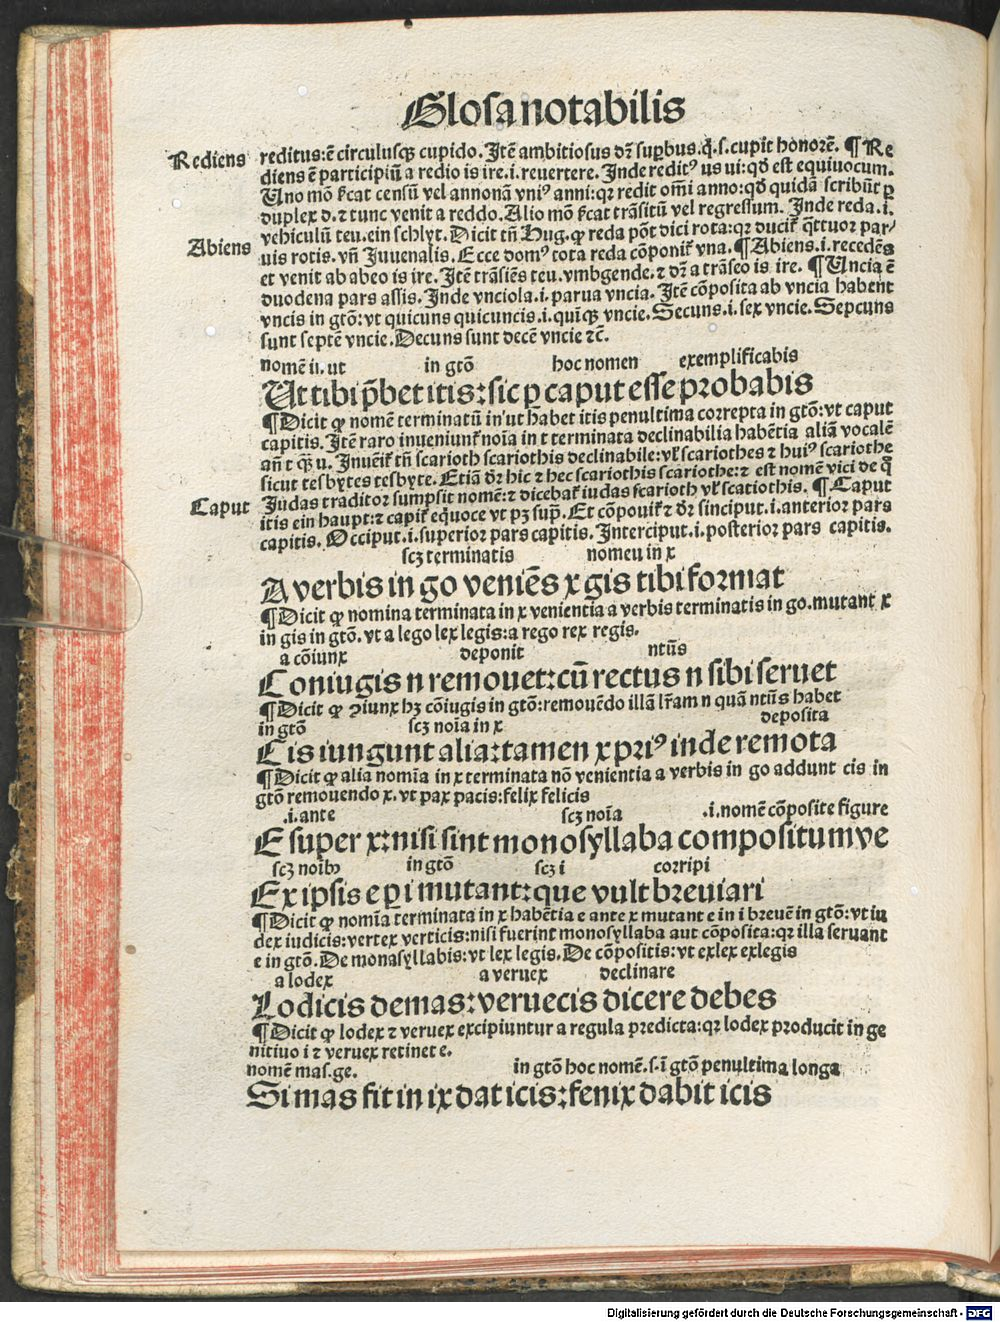 Glosa notabilis
Rediens
reditus:ē circulusqꝫ cupido. Itē ambitiosus dr̄ suꝑbus.q̇.s.cupit honorē. ¶ Re
diens ē participiū a redio is ire.i.reuertere. Inde reditꝰ us ui:qd̄ est equiuocum.
Uno mō ſicat censū vel annonā vniꝰ anni:qꝛ redit om̄i anno:qd̄ quidā scribūt ꝑ
duplex d.ꝛ tunc venit a reddo. Alio mō ſicat trāsitū vel regressum. Inde reda.i.
vehiculū teu.ein schlyt. Dicit tn̄ Hug. ꝙ reda pōt dici rota:qꝛ ducit̉ q̄ttuor par/
Abiens
uis rotis. vn̄ Iuuenalis. Ecce domꝰ tota reda cōponit̉ vna. ¶ Abiens.i.recedēs
et venit ab abeo is ire. Itē trāsiēs teu.vmbgende.ꝛ dr̄ a trāseo is ire. ¶ Uncia ē
duodena pars assis. Inde vnciola.i.parua vncia. Itē cōposita ab vncia habent
vncis in gtō:vt quicuns quicuncis.i.quiqꝫ vncie. Secuns.i.sex vncie. Sepcuns
sunt septē vncie. Decuns sunt decē vncie ꝛc̄.
nomē ii.ut in gtō hoc nomen exemplificabis
Ut tibi p̄bet itis:sic ꝑ caput esse probabis
¶ Dicit ꝙ nomē terminatū in ut habet itis penultima correpta in gtō:vt caput
capitis. Itē raro inueniunt̉ noīa in t terminata declinabilia habētia aliā vocalē
an̄ t q̄ꝫ u. Inuēit̉ tn̄ scarioth scariothis declinabile:vl̉ scariothes ꝛ huiꝰ scariothe
sicut tesbytes tesbyte. Etiā dr̄ hic ꝛ hec scariothis scariothe:ꝛ est nomē vici de q̄
Iudas traditor sumpsit nomē:ꝛ dicebat̉ iudas scarioth vl̉ scatiothis. ¶ Caput
Caput
itis ein haupt:ꝛ capit̉ equoce vt pꝫ sup̄. Et cōpouit̉ ꝛ dr̄ sinciput.i.anterior pars
capitis. Occiput.i.superior pars capitis. Interciput.i.posterior pars capitis.
scꝫ terminatis nomeu in x
A verbis in go veniēs x gis tibi format
¶ Dicit ꝙ nomina terminata in x venientia a verbis terminatis in go.mutant x
in gis in gtō. vt a lego lex legis:a rego rex regis.
a cōiunx deponit ntūs
Coniugis n remouet:cū rectus n sibi seruet
¶ Dicit ꝙ ꝯiunx hꝫ cōiugis in gtō:remouēdo illā lr̄am n quā ntūs habet
in gtō scꝫ noīa in x deposita
Cis iungunt alia:tamen x priꝰ inde remota
¶ Dicit ꝙ alia nomīa in x terminata nō venientia a verbis in go addunt cis in
gtō remouendo x. vt pax pacis:felix felicis
.i.ante scꝫ noīa .i.nomē cōposite figure
E super x:nisi sint monosyllaba compositumve
scꝫ noībꝫ in gtō scꝫ i corripi
Ex ipsis e ꝑ i mutant:que vult breuiari
¶ Dicit ꝙ nomīa terminata in x habētia e ante x mutant e in i breuē in gtō:vt iu
dex iudicis:vertex verticis:nisi fuerint monosyllaba aut cōposita:qꝛ illa seruant
e in gtō. De monasyllabis:vt lex legis. De cōpositis:vt exlex exlegis
a lodex a veruex declinare
Lodicis demas:veruecis dicere debes
¶ Dicit ꝙ lodex ꝛ veruex excipiuntur a regula predicta:qꝛ lodex producit in ge
nitiuo i ꝛ veruex retinet e.
nomē mas.ge. in gtō hoc nomē.s.ī gtō penultima longa
Si mas fit in ix dat icis:fenix dabit icis
Digitalisierung gefördert durch die Deutsche Forschungsgemeinschaft - DFG